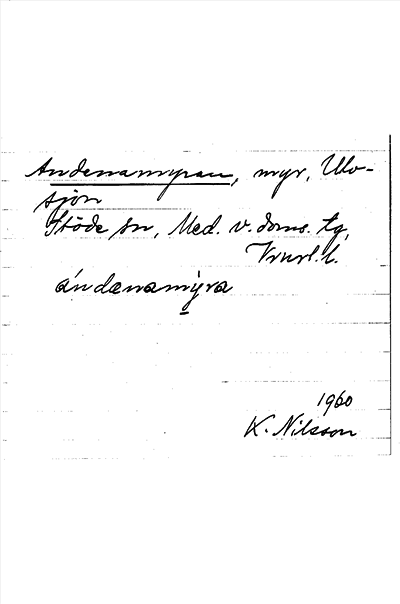 Andenamyran, myr, Ulv-
sjön
Stöde sn, Med. v. doms. tg,
Vnrl. l.
ándænamỳra
1960
K. Nilsson